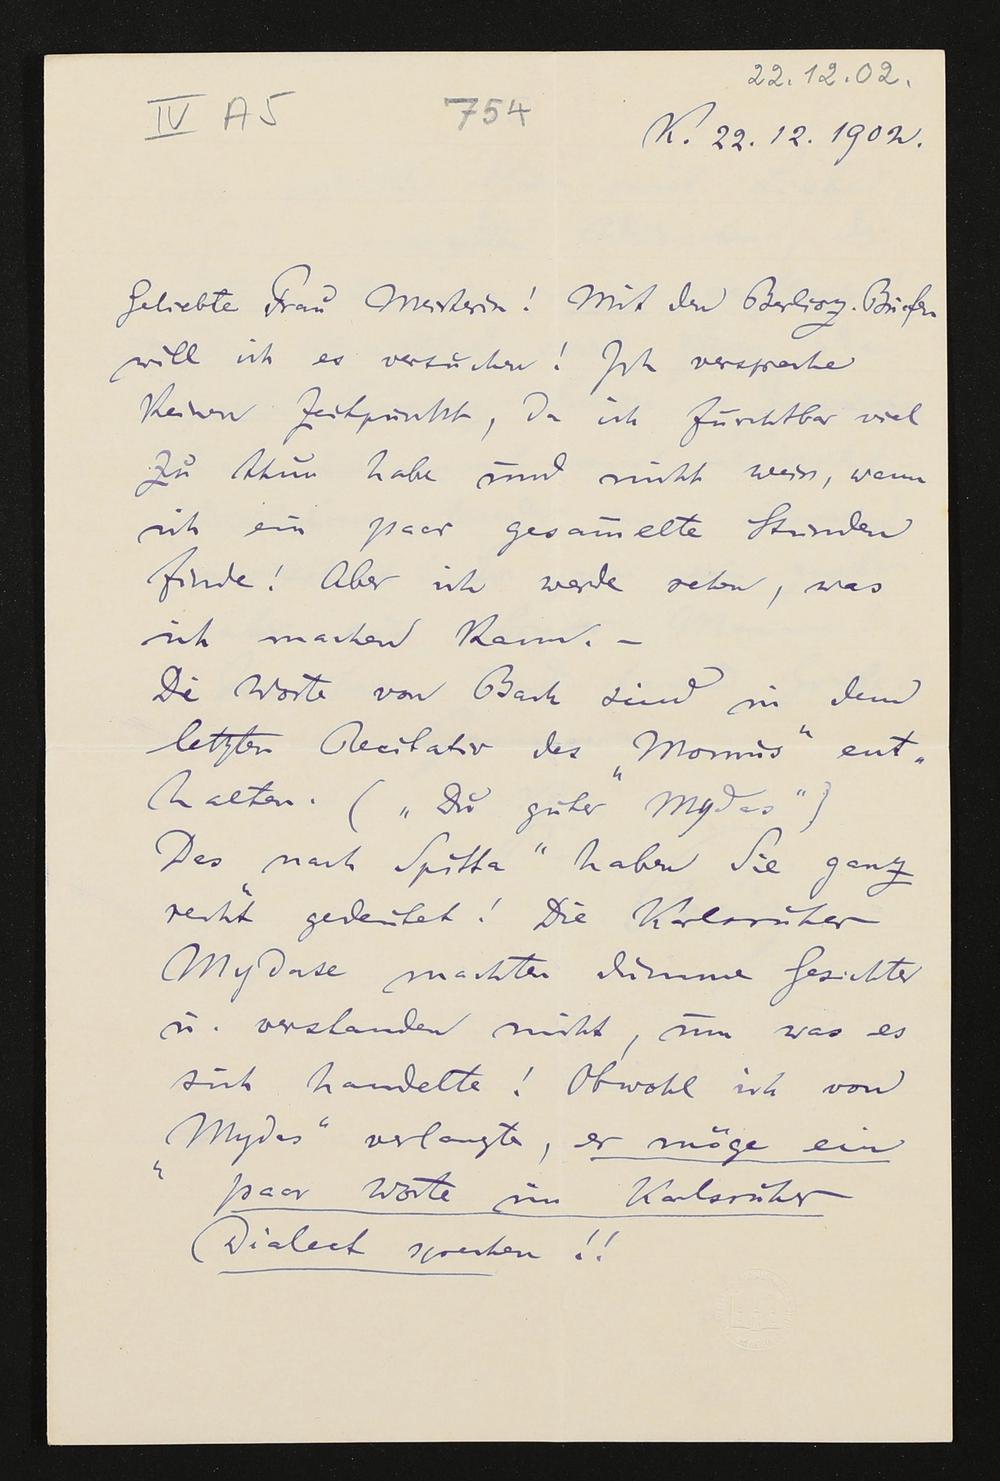 22.12.02.
IV A5 754
K. 22. 12. 1902.
Geliebte Frau Meisterin! Mit den Berlioz-Briefen
will ich es versuchen! Ich verspreche
keinen Zeitpunkt, da ich furchtbar viel
zu thun habe und nicht weiss, wann
ich ein paar gesam̅elte Stunden
finde! Aber ich werde sehen, was
ich machen kann. –
Di Worte von Bach sind in dem
letzten Recitativ des „Momus“ ent-
halten. („Du guter Mydas“)
Das „nach Spitta“ haben Sie ganz
recht gedeutet! Die Karlsruher
Mydase machten dumme Gesichter
u. verstanden nicht, um was es
sich handelte! Obwohl ich von
„Mydas“ verlangte, er möge ein
paar Worte im Karlsruher
Dialect sprechen!!